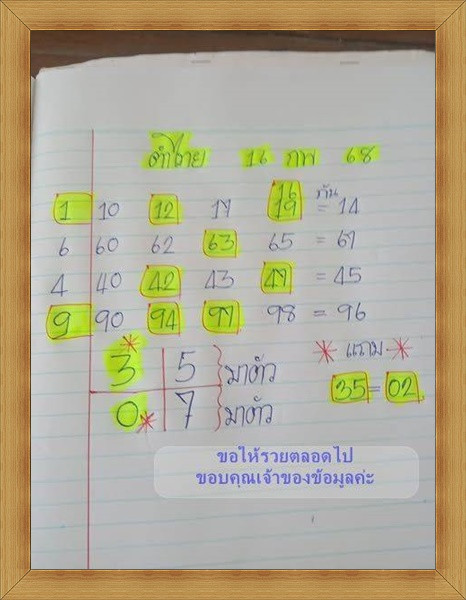 ลำไย 16 กพ 68
16 กัน
1 10 12 17 19 = 14
6 60 62 63 65 = 67
4 40 42 43 47 = 45
9 90 94 97 98 = 96
* แถม *
3* 5 } มาตัว
35 = 02
0* 7 } มาตัว
ขอให้รวยตลอดไป
ขอบคุณเจ้าของข้อมูลค่ะ